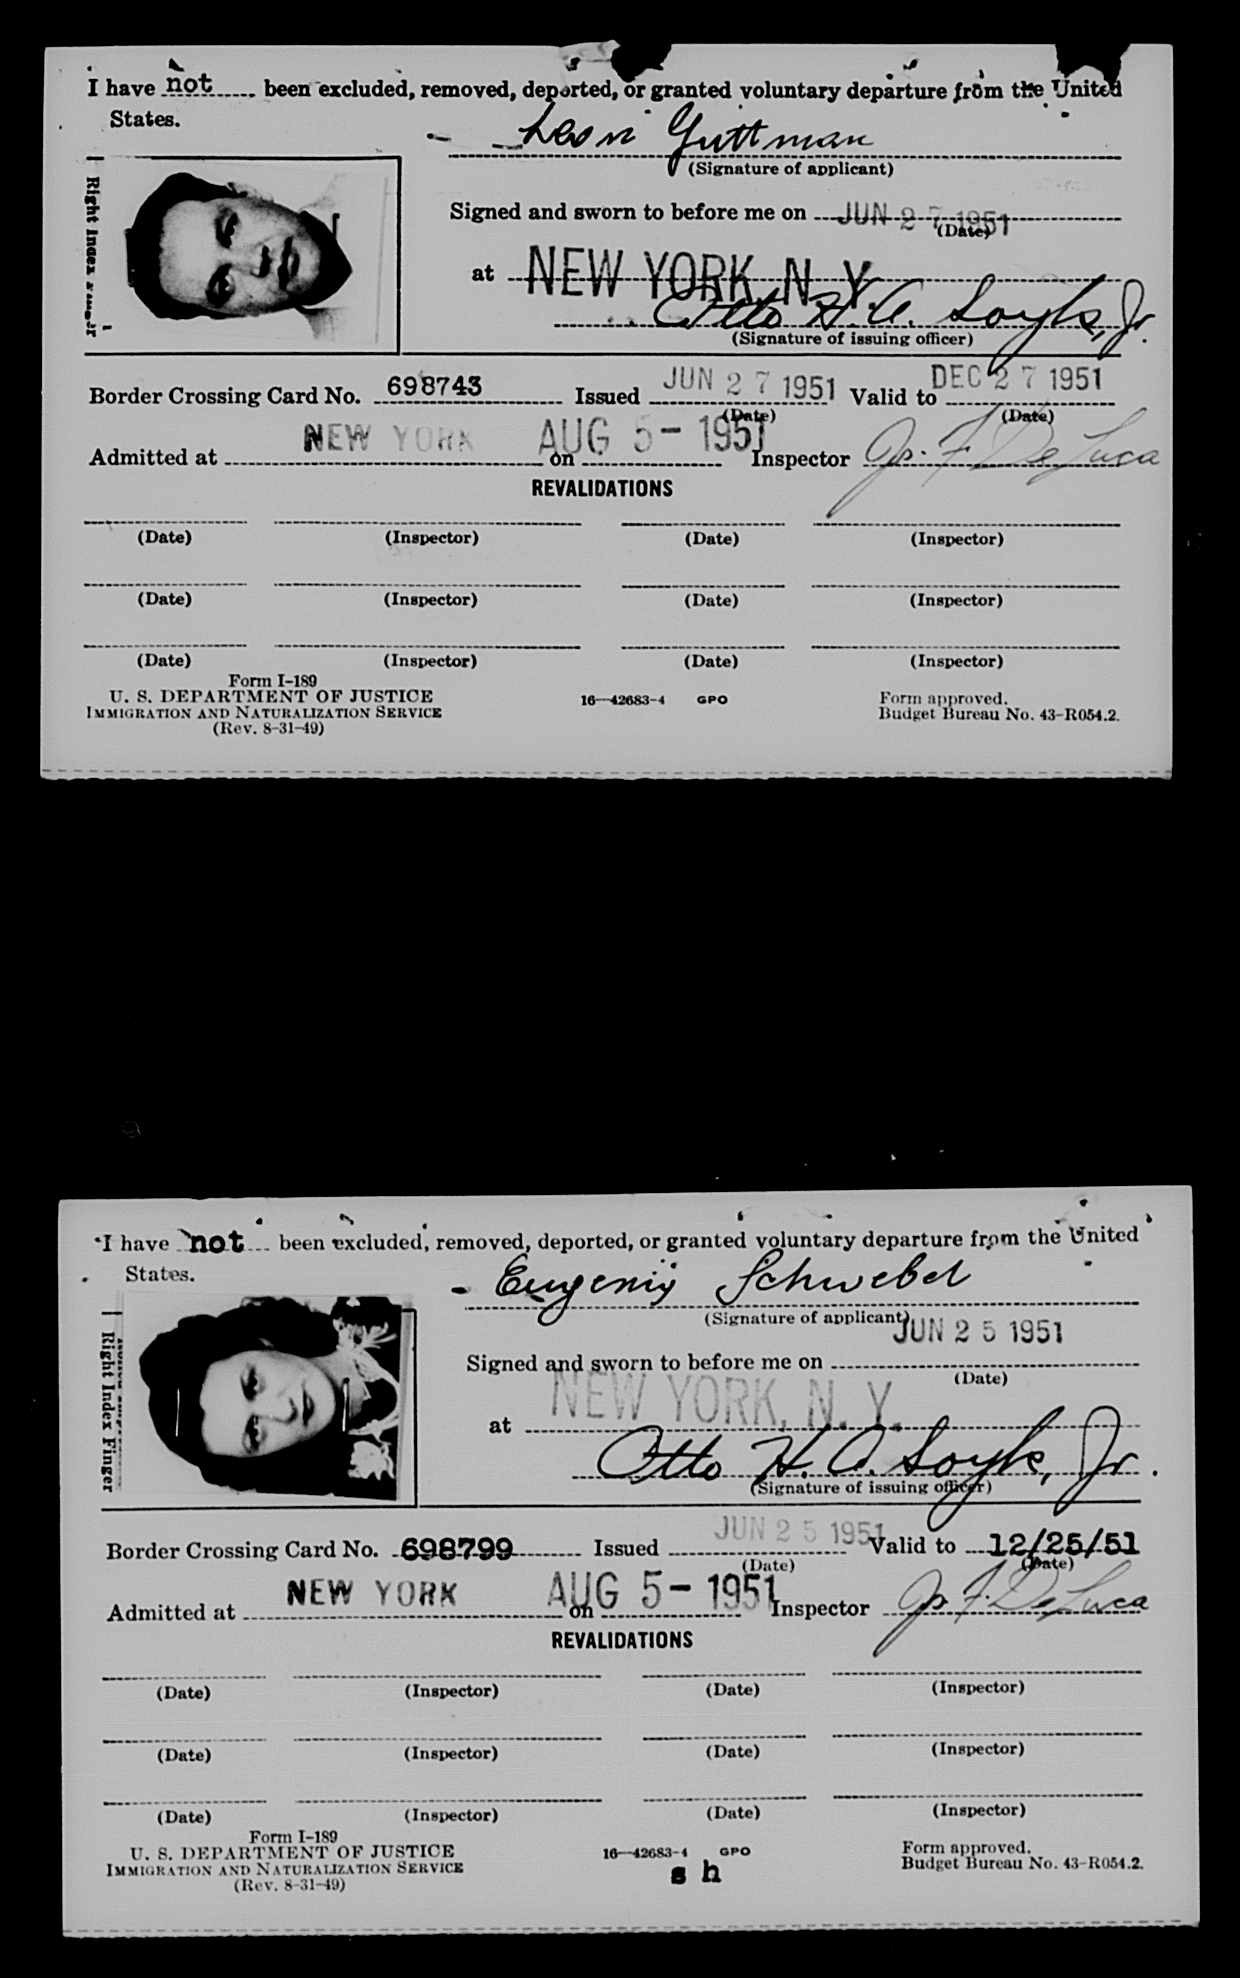 I have not been excluded, removed, deported, or granted voluntary departure from the United
States.
Leon Guttman
(Signature of applicant)
Right Index
Signed and sworn to before me on JUN 27 1951
(Date)
at NEW YORK, N. Y.
Otto H. A. Soyk, Jr.
(Signature of issuing officer)
Border Crossing Card No. 698743 Issued JUN 27 1951 Valid to DEC 27 1951
(Date) (Date)
Admitted at NEW YORK on AUG 5 - 1951 Inspector Jos. F. De Luca
REVALIDATIONS
(Date) (Inspector) (Date) (Inspector)
(Date) (Inspector) (Date) (Inspector)
(Date) (Inspector) (Date) (Inspector)
Form I-189
U. S. DEPARTMENT OF JUSTICE 16—42683-4 GPO Form approved.
IMMIGRATION AND NATURALIZATION SERVICE Budget Bureau No. 43-R054.2.
(Rev. 8-31-49)
I have not been excluded, removed, deported, or granted voluntary departure from the United
States.
Schwebel
(Signature of applicant)
Right Index Finger
Signed and sworn to before me on JUN 25 1951
(Date)
at NEW YORK, N. Y.
Otto H. A. Soyk, Jr.
(Signature of issuing officer)
Border Crossing Card No. 698799 Issued JUN 25 1951 Valid to 12/25/51
(Date) (Date)
Admitted at NEW YORK on AUG 5 - 1951 Inspector Jos. F. De Luca
REVALIDATIONS
(Date) (Inspector) (Date) (Inspector)
(Date) (Inspector) (Date) (Inspector)
(Date) (Inspector) (Date) (Inspector)
Form I-189
U. S. DEPARTMENT OF JUSTICE 16—42683-4 GPO Form approved.
IMMIGRATION AND NATURALIZATION SERVICE s h Budget Bureau No. 43-R054.2.
(Rev. 8-31-49)